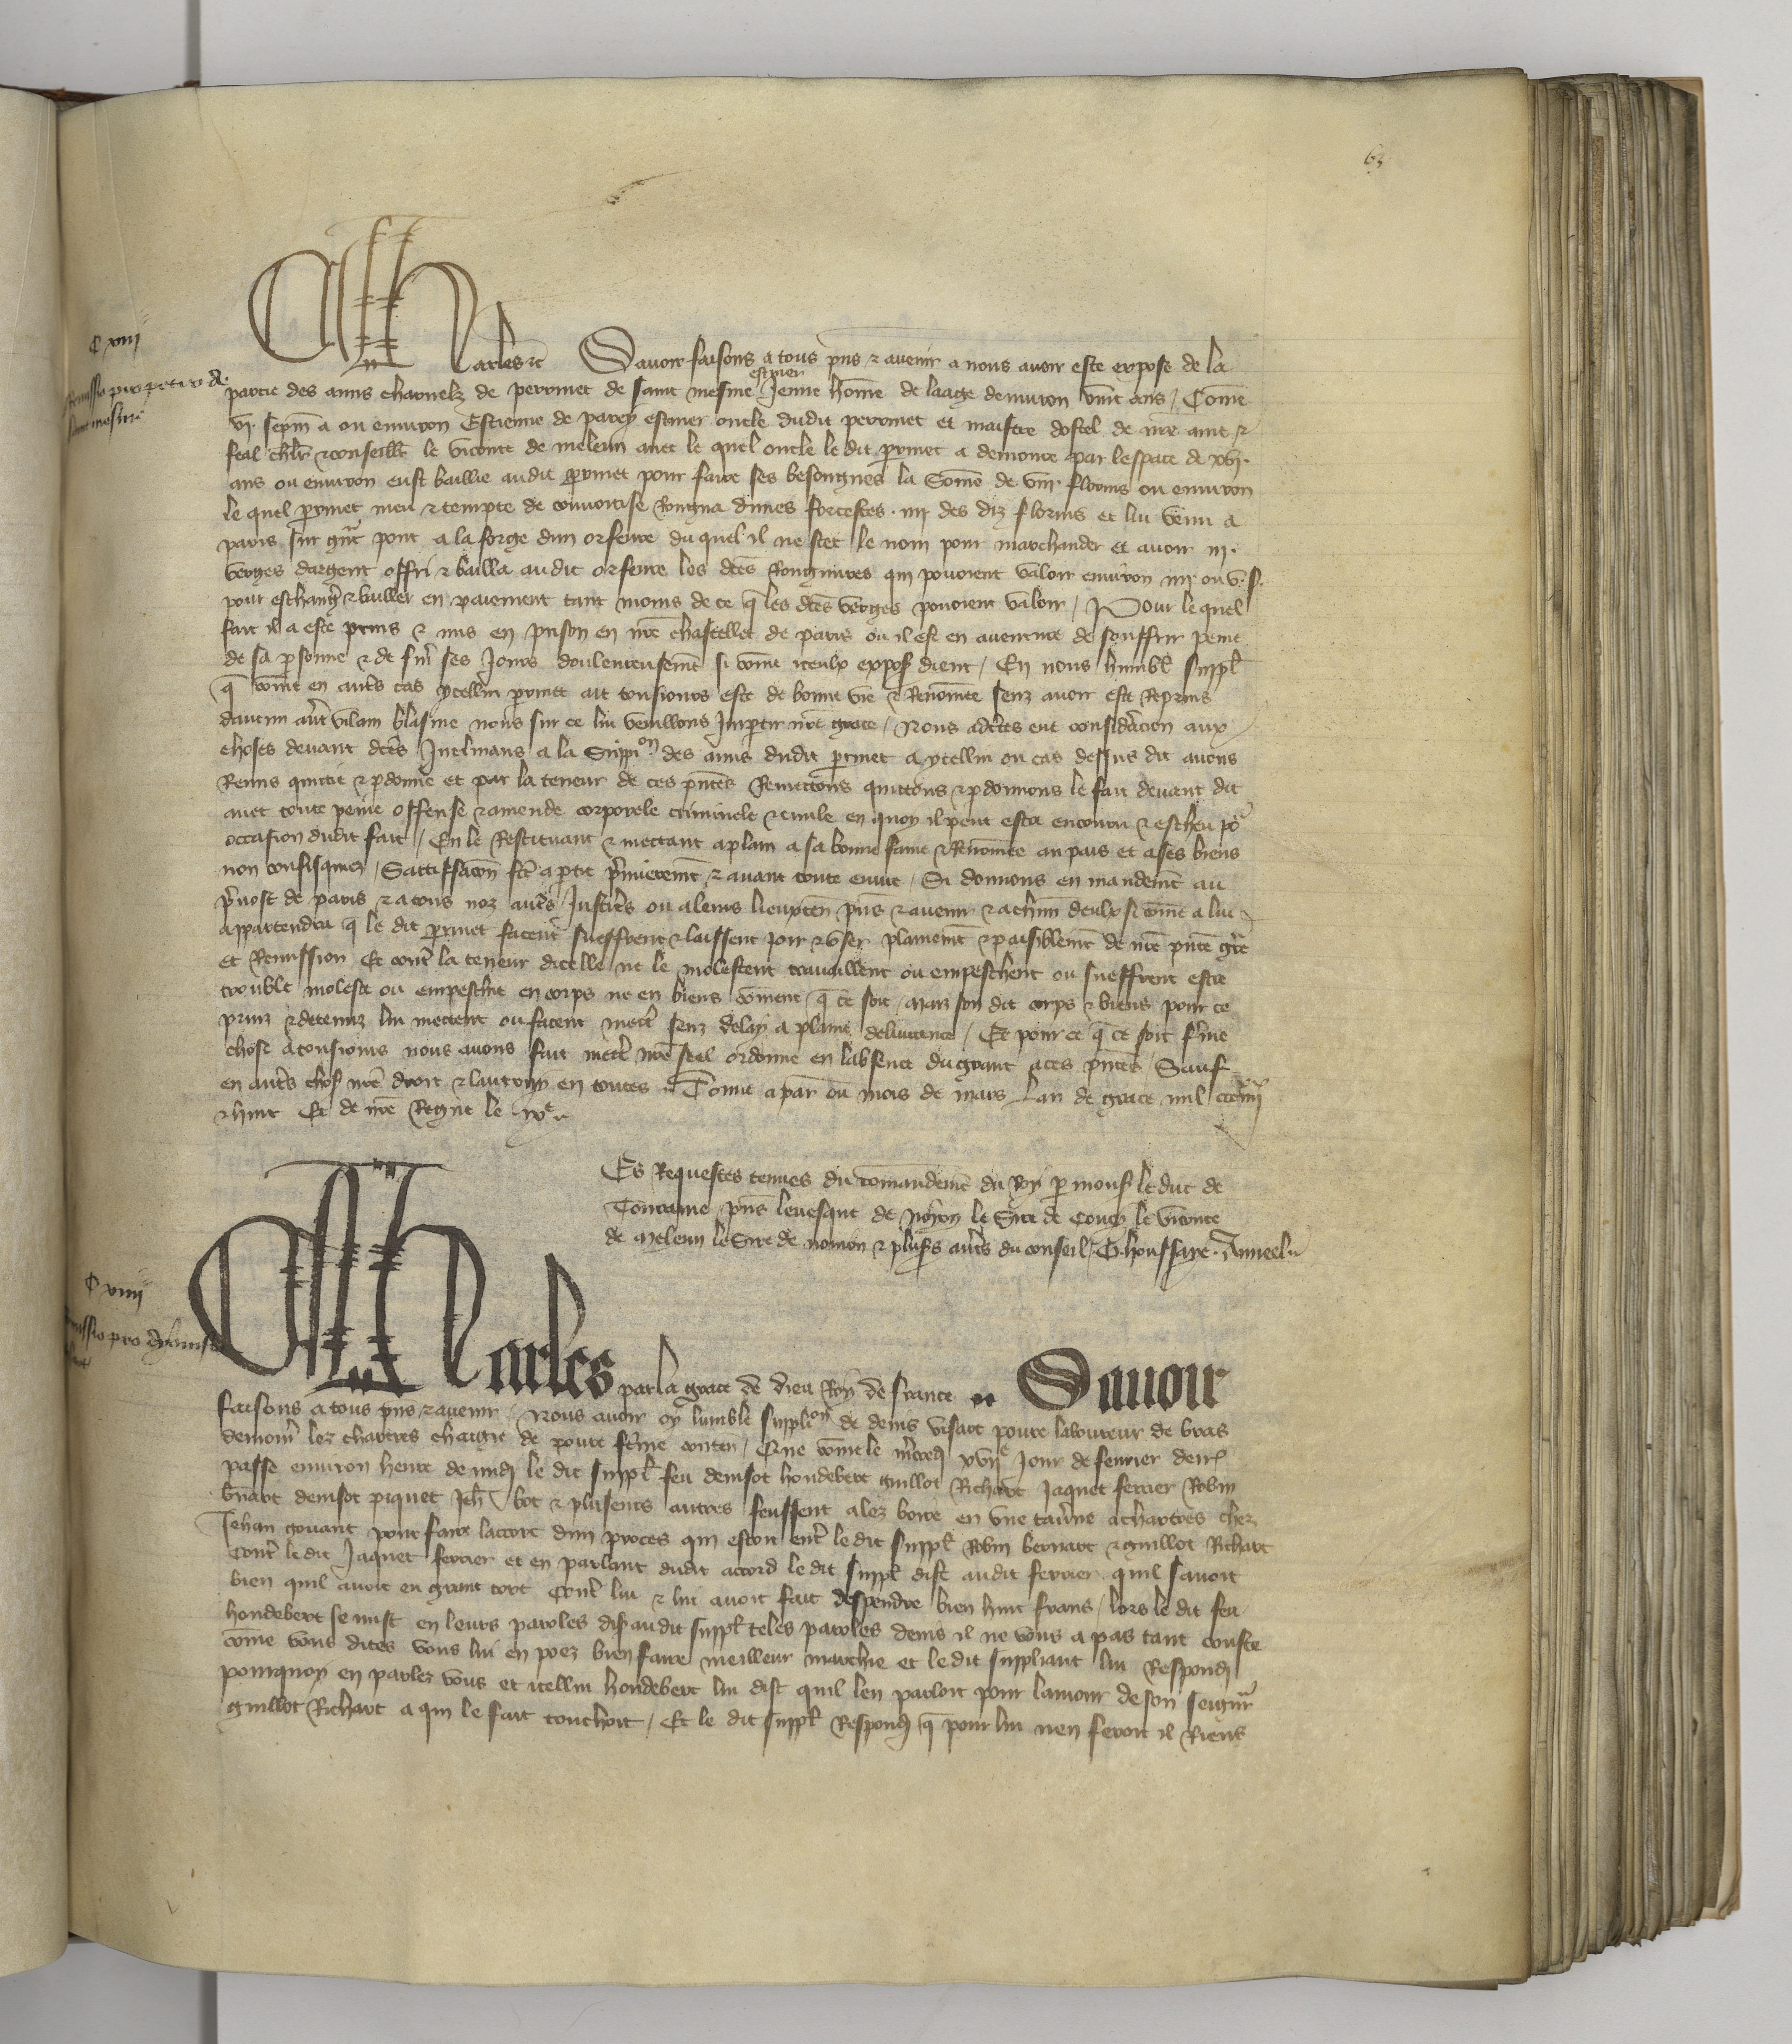 63
C xiii
Charles etc Savoir faisons a tous pns & avenir a nous avoir este expose de la
partie des amis charnelz de perrinet de saint mesme escuier Jenne home de laage denviron vint ans / Come
vi. sepm a ou environ Estienne de parey escuier oncle dudit perrinet et maistre dostel de nre ame &
feal chlr & conseillr le viconte de meleun avec le quel oncle le dit prinet a demoure par lespace de xvi.
ans ou environ eust baillie audit prinet pour faire ses besongnes la Some de viii. florins ou environ
le quel prinet meu & tempte de convoitise Rongna dunes forcestes. iiii des diz florins et lui venu a
paris sur gnt pont a la forge dun orfevre du quel il ne scet le nom pour marchander et avoir iii.
verges dargent offri & bailla audit orfevre les dtes Rongnures qui povoient valoir environ iiii ou v. s.
pour eschangr & bailler en paiement tant moins de ce q les dtes verges povoient valoir / Pour le quel
fait il a este prins & mis en prison en nre chastellet de paris ou il est en aventure de souffrir peine
de sa psonne & de finr ses Jours doulereusemt si come iceulx expos dient / En nous humblt suppl
q come en autrs cas ycellui prinet ait tousiours este de bonne vie & Renomee senz avoir este Reprins
daucun autr vilain blasme nous sur ce lui veuillons Impartir nre grace / Nous adctes eue consideracion aux
choses devant dctes Inclinans a la Supplion des amis dudit prinet a ycellui ou cas dessus dit avons
Remis quittie & pdonne et par la teneur de ces pntes Remettons quittons & pdonnons le fait devant dit
avec toute peine offense & amende corporele criminele & civile en quoy il peut estre encouru & escheu po
occasion dudit fait / En le Restituant & mettant a plain a sa bonne fame & Renomee au pais et a ses biens
non confisquez / Sattiffacon fcte a ptie primierement & avant toute euvre / Si donnons en mandemt au
prevost de paris & a tous noz autrs Justicrs ou a leurs lieuxten pns & avenir & a chun deulx si come a lui
appartendra q le dit prinet facent sueffrent & laissent joir & user plainemt & paisiblemt de nre pnte grce
et Remission Et contr la teneur dicelle ne le molestent travaillent ou empeschent ou sueffrent estre
trouble moleste ou empeschie en corps ne en biens coment q ce soit / maiz son dit corps & biens pour ce
prinz & detenuz lui mettent ou facent mectr senz delay a plaine delivrance / Et pour ce q ce soit ferme
chose a tousiours nous avons fait mectr nre seel ordonne en labsence du grant a ces pntes / Sauf
en autrs chos nre droit & lautruy en toutes Donne a par ou mois de mars Lan de grace mil ccc iiiixx
& huit Et de nre Regne le ixe
Es Requestes tenues du comandemt du Roy p mons le duc de
Touraine pns levesque de noyon le Sire de Coucy le viconte
de Meleun le Sire de & plusrs autrs du conseil / G. houssaye. Anneel
C xiiii
Charles par la grace de dieu Roy de france Savoir
faisons a tous pns & avenir / Nous avoir oy lumble supplion de denis visart povre laboureur de bras
demour lez chartres chargie de povre feme conten / Que come le mcredi xvii jour de fevrier derr
passe environ heure de midi le dit suppl feu denisot houdebert guillot Richart Jaquet ferrier Robin
bnart denisot piquet Jeh bot & plusieurs autres feussent alez boire en une taverne a chartres chez
Jehan gouant pour faire laccort dun proces qui estoit entr le dit suppl Robin bernart & guillot Richart
contr le dit Jaquet ferrier et en parlant dudit accord le dit suppl dist audit ferrier quil savoit
bien quil avoit eu grant tort contr lui & lui avoit fait despendre bien huit frans / lors le dit feu
houdebert se mist en leurs paroles dis audit suppl teles paroles denis il ne vous a pas tant couste
come vous dites vous lui en poez bien faire meilleur marchie et le dit suppliant lui Respondi
pourquoy en parlez vous et icellui houdebert lui dist quil len parloit pour lamour de son seignr
guillot Richart a qui le fait touchoit / Et le dit suppl Respondi q pour lui nen feroit il Riens